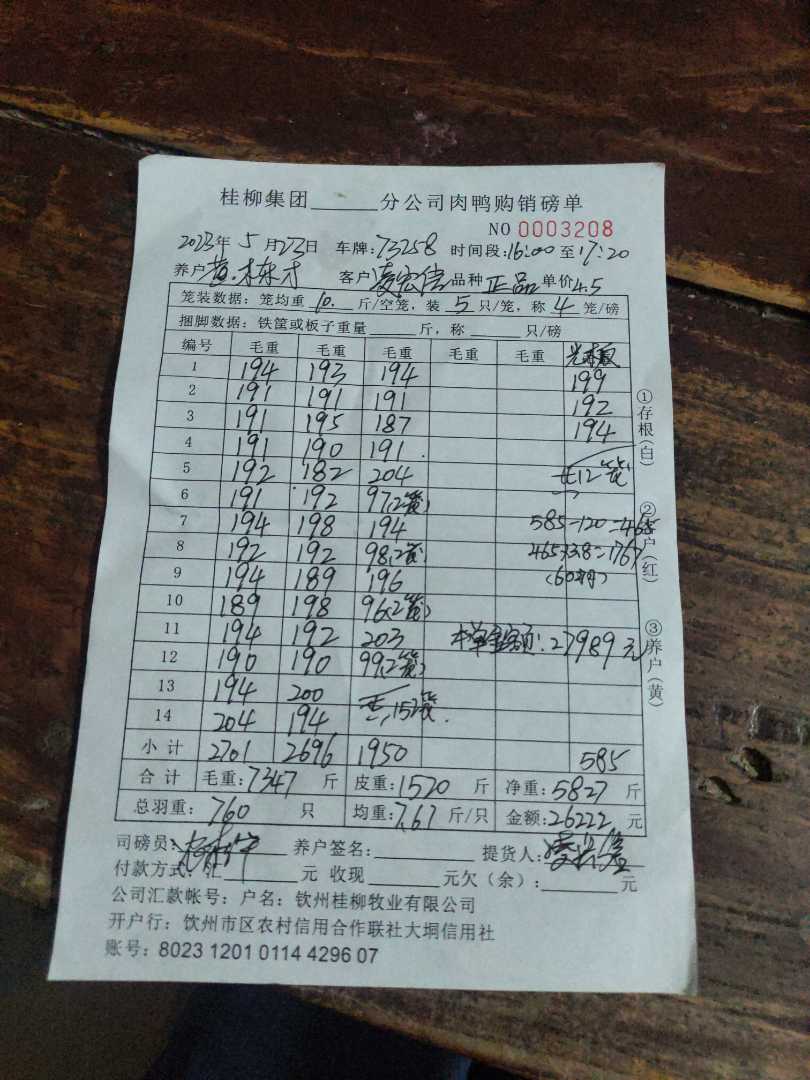 桂柳集团______分公司肉鸭购销磅单
NO 0003208
2023年 5 月23日 车牌:73258 时间段:16:00 至17:20
养户 黄 客户 凌宏信 品种 正品 单价4.5
笼装数据: 笼均重 10. 斤/空笼, 装 5 只/笼, 称 4 笼/磅
捆脚数据: 铁筐或板子重量______斤, 称______只/磅
编号 毛重 毛重 毛重 毛重 毛重
1 194 193 194 199
2 191 191 191 192
3 191 195 187 194
4 191 190 191.
5 192 182 204 12笼
6 191 192 97(2笼)
7 194 198 194 585-120=465
8 192 192 98(2笼) 465×3.8=1767
9 194 189 196 (60只)
10 189 198 96(2笼)
11 194 192 203 本单金额:27989元
12 190 190 99(2笼)
13 194 200 152笼.
14 204 194
小计 2701 2696 1950 585
合计 毛重:7347 斤 皮重:1520 斤 净重:5827 斤
总羽重: 760 只 均重:7.67 斤/只 金额:26222 元
①存根(白)
②客户(红)
③养户(黄)
司磅员: 养户签名: 提货人:
付款方式: 汇______元 收现______元欠(余):______元
公司汇款帐号: 户名: 钦州桂柳牧业有限公司
开户行: 钦州市区农村信用合作联社大垌信用社
账号: 8023 1201 0114 4296 07